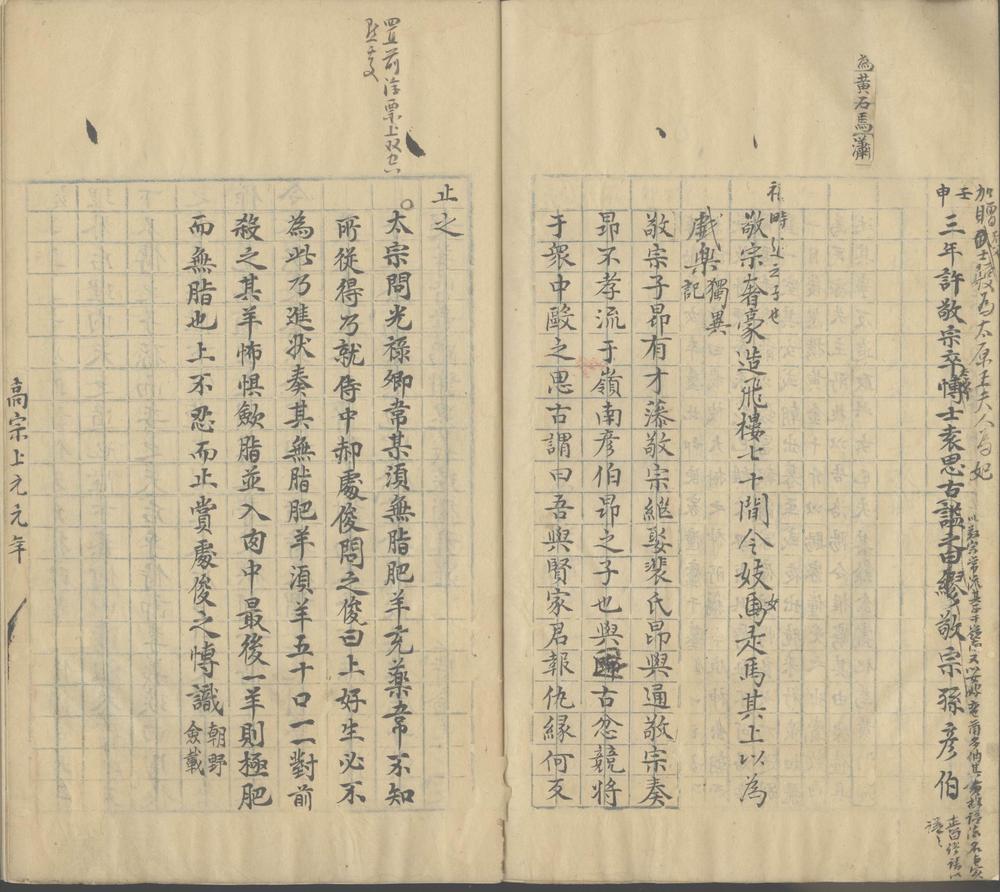 為黃石馬瀟
加贈武士彠為太原王夫人為妃
壬申
三年許敬宗卒博士袁思古諡曰繆敬宗孫彥伯
敬宗奢豪造飛樓七十間令妓女走馬其上以為
戲樂獨異記
敬宗子昂有才藻敬宗繼娶裴氏昂與通敬宗奏
昂不孝流于嶺南彥伯昂之子也與古忿競將
于衆中毆之思古謂曰吾與賢家君報仇緣何反
止之
置前浮票上
太宗問光祿卿韋某須無脂肥羊充藥韋不知
所從得乃就侍中郝處俊問之俊曰上好生必不
為此乃進狀奏其無脂肥羊須羊五十口一一對前
殺之其羊怖惧歛脂並入肉中最後一羊則極肥
而無脂也上不忍而止賞處俊之博識朝野僉載
高宗上元元年